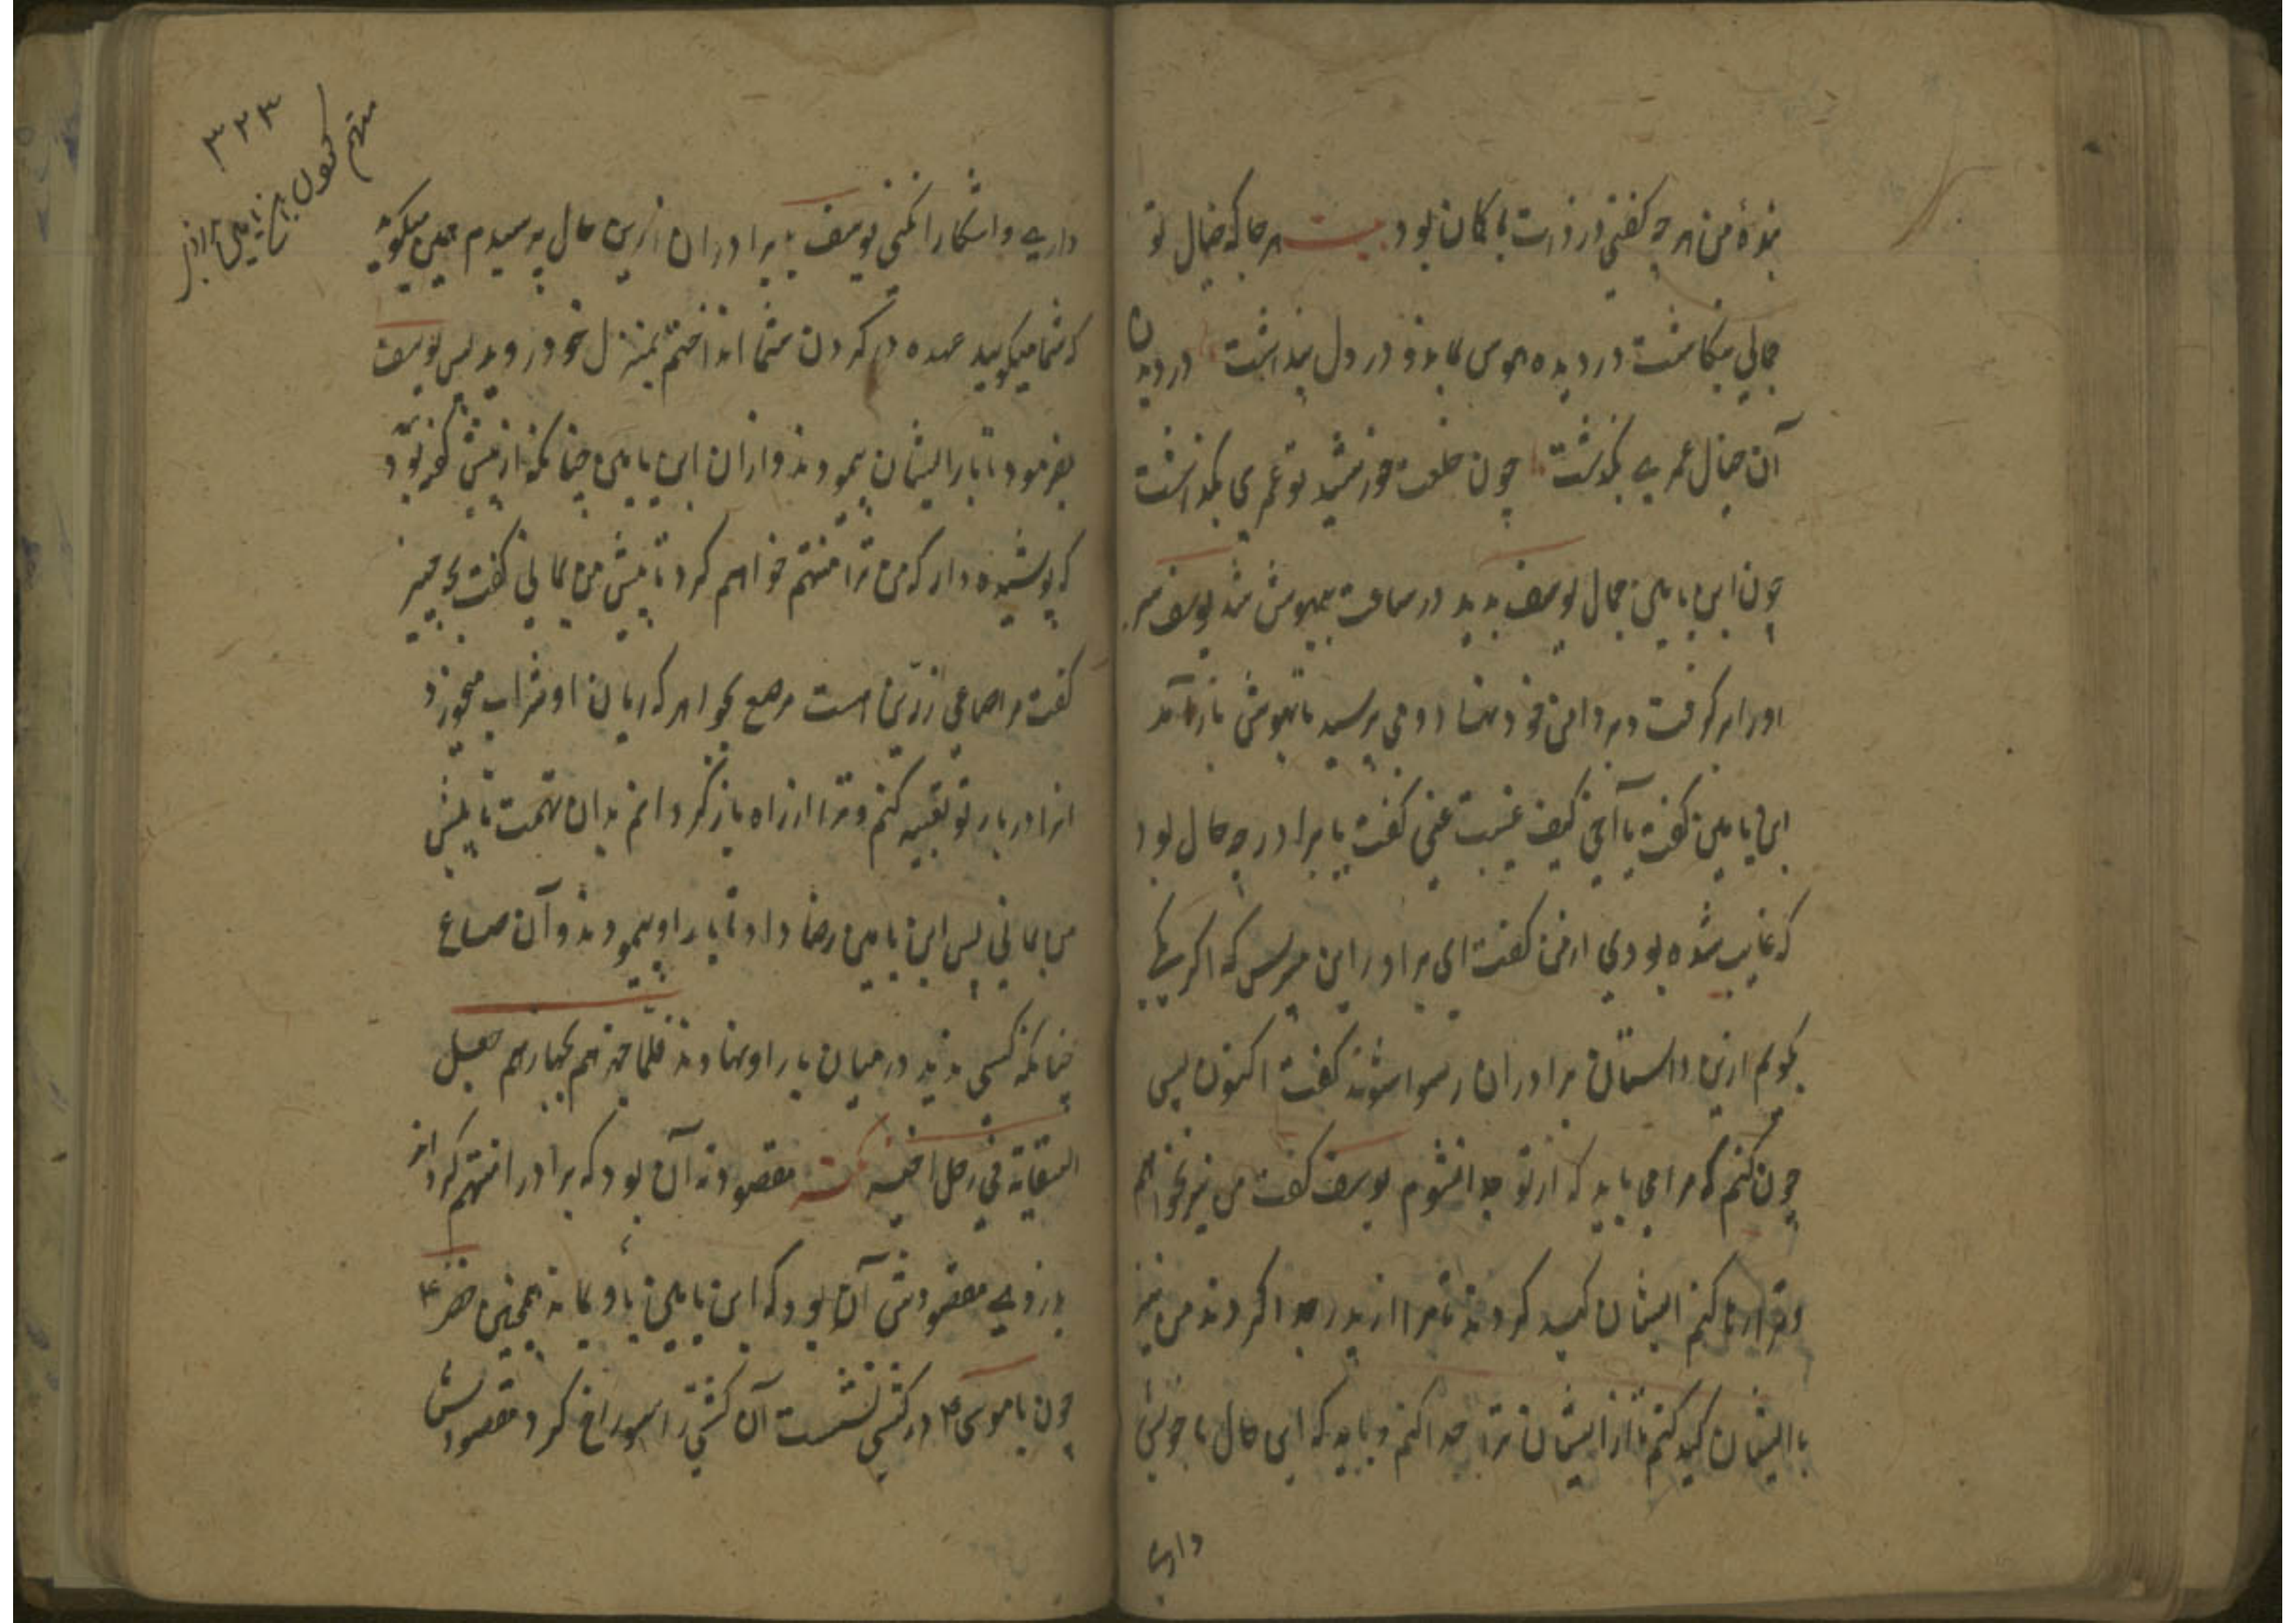 بندهٔ من هر چه کفتی در ذرت با کان بود بیت هر جا که خیال تو
جمالی بنکاشت در دیده هوس نماند و در دل پنداشت در دیدن
آن خیال عمری بکذشت چون خلعت خورشید تو عمری بکذاشت
چون ابن یامین جمال یوسف بدید در ساعت بیهوش شد یوسف سر
اورا بر کرفت و بر دامن خود نهاد و می پرسید تا بهوش باز آمد
ابن یامین کفت یا اخی کیف غیبت عنی کفت یا برادر چه حال بود
که غایب شده بودی از من کفت ای برادر این مپرس که اکر
بکویم ازین داستان برادران رسوا شوند کفت اکنون پس
چون کنم که مرا می باید که از تو جدا نشوم یوسف کفت من نیز نخواهم
و ترا رها کنم ایشان کید کردند تا مرا از پدر جدا کردند من نیز
با ایشان کید کنم تا از ایشان ترا جدا کنم و باید که این حال با خویش
داری
۳۲۳
متهم کردن ابن یامین برادر
داری و اشکارا نکنی یوسف برادران ازین حال پرسیدم همین میکوید
که شما میکویید عهده در کردن شما انداختم بمنزل خود روید پس یوسف
بفرمود تا بار ایشان پیمودند و از ان ابن یامین چنانکه از پیش کفته بود
که پوشیده دار که من ترا متهم خواهم کرد تا پیش من بمانی کفت بچه چیز
کفت مرا صاعی زرین است مرصع بجواهر که ریان از او شراب میخورد
انرا در بار تو تعبیه کنم و ترا از راه باز کردانم بدان تهمت تا پیش
من بمانی پس ابن یامین رضا داد تا بار او پیمودند و آن صاع
چنانکه کسی ندید در میان بار او نهادند فلما جهزهم بجهازهم جعل
السقایة فی رحل اخیه مقصود نه آن بود که برادر را متهم کرداند
بدزدی مقصودش آن بود که ابن یامین با او بماند همچنین خضر ع
چون با موسی ع در کشتی نشست آن کشتی را سوراخ کرد مقصودش